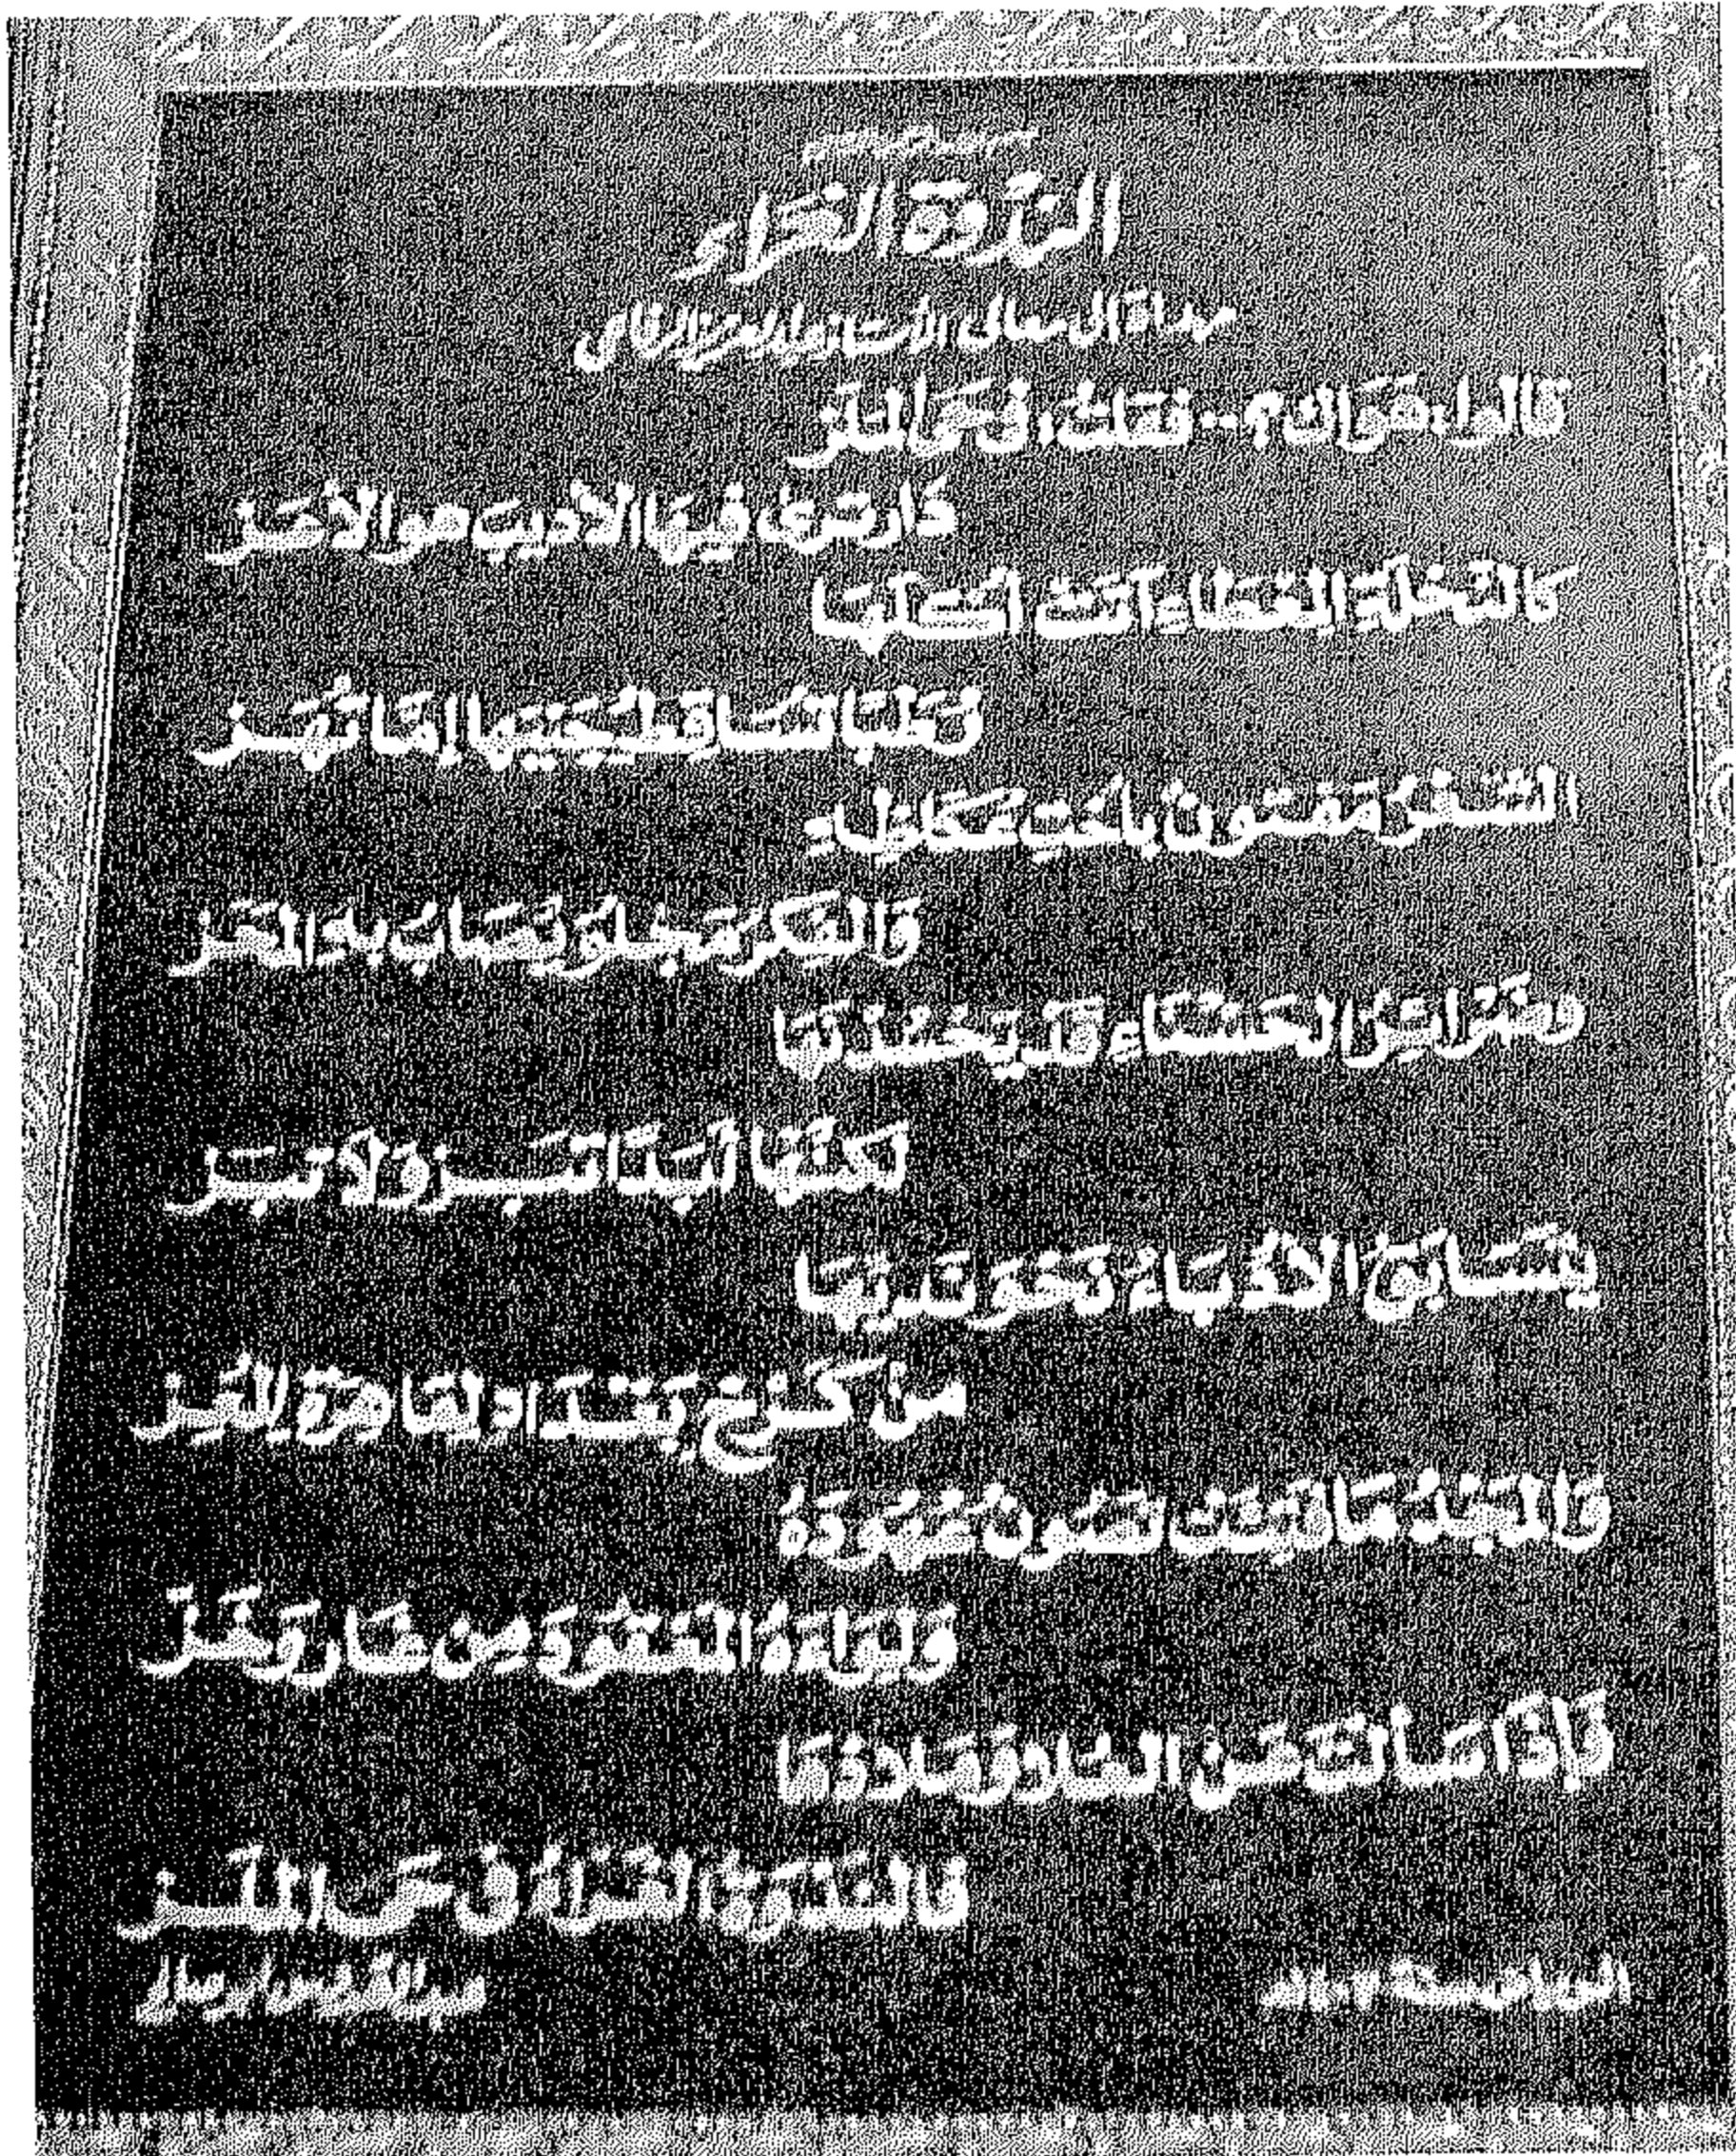 الندوة الغراء
مهداة إلى معالي الأستاذ عبدالعزيز الرفاعي
قالوا، هَوَاك؟.. فقلتُ، في حَيِّ الملز
دَار ترىٰ فيهَا الأديبَ هو الأعَز
كالنَّخلَةِ المعطاءِ آتَتْ أكْلَهَا
رُطَبًا تسَاقِطُ يُجتنيها إمَّا تُهَز
الشعْرُ مَفتونٌ بأختِ عُكاظِهِ
وَالفِكرُ مَجلوٌّ يُصَابُ بهِ المحَز
وضَرائِرُ الحَسْنَاءِ قد يَحْسُدْنَهَا
لكنَّهَا أبَدًا تَبُز وَلا تُبَز
يتَسَابَقُ الأدُبَاءُ نَحْوَ نَديِّهَا
منْ كَرْخِ بَغْدَاد لِقَاهِرَةِ المُعِز
وَالمَجْدُ مَا فَتِئَتْ تَصُونُ عُهُودَهُ
وَلِوَاءَهُ المعْقُودَ مِن غَار وَخَز
فَإذَا سَألْتَ عَن العُلا وَمَلاذِهَا
فَالنَّدْوَةُ الغَرَّاءُ في حَيِّ الملَز
الرياض سنة